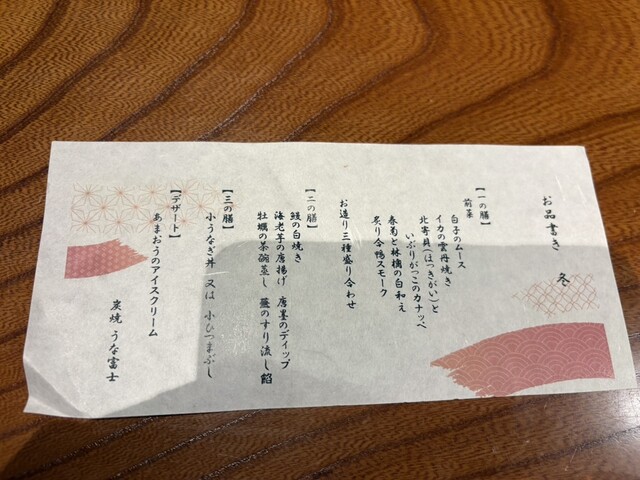 お品書き　冬
【一の膳】
前菜
白子のムース
イカの雲丹焼き
北寄貝(ほっきがい)と
いぶりがっこのカナッペ
春菊と林檎の白和え
炙り合鴨スモーク
お造り三種盛り合わせ
【二の膳】
鰻の白焼き
海老芋の唐揚げ　唐墨のディップ
牡蠣の茶碗蒸し　蕪のすり流し餡
【三の膳】
小うなぎ丼　又は　小ひつまぶし
【デザート】
あまおうのアイスクリーム
炭焼 うな富士